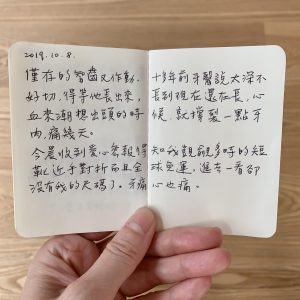 2019.10.8.
僅存的智齒又作動，十多年前牙醫說太深不
好切，得等他長出來，長到現在還在長，心
血來潮想出頭的時候，就撐裂一點牙
肉，痛幾天。
今晨收到愛心報得知我覬覦多時的短
靴近乎對折而且全球免運，進去一看卻
沒有我的尺碼了。牙痛心也痛。